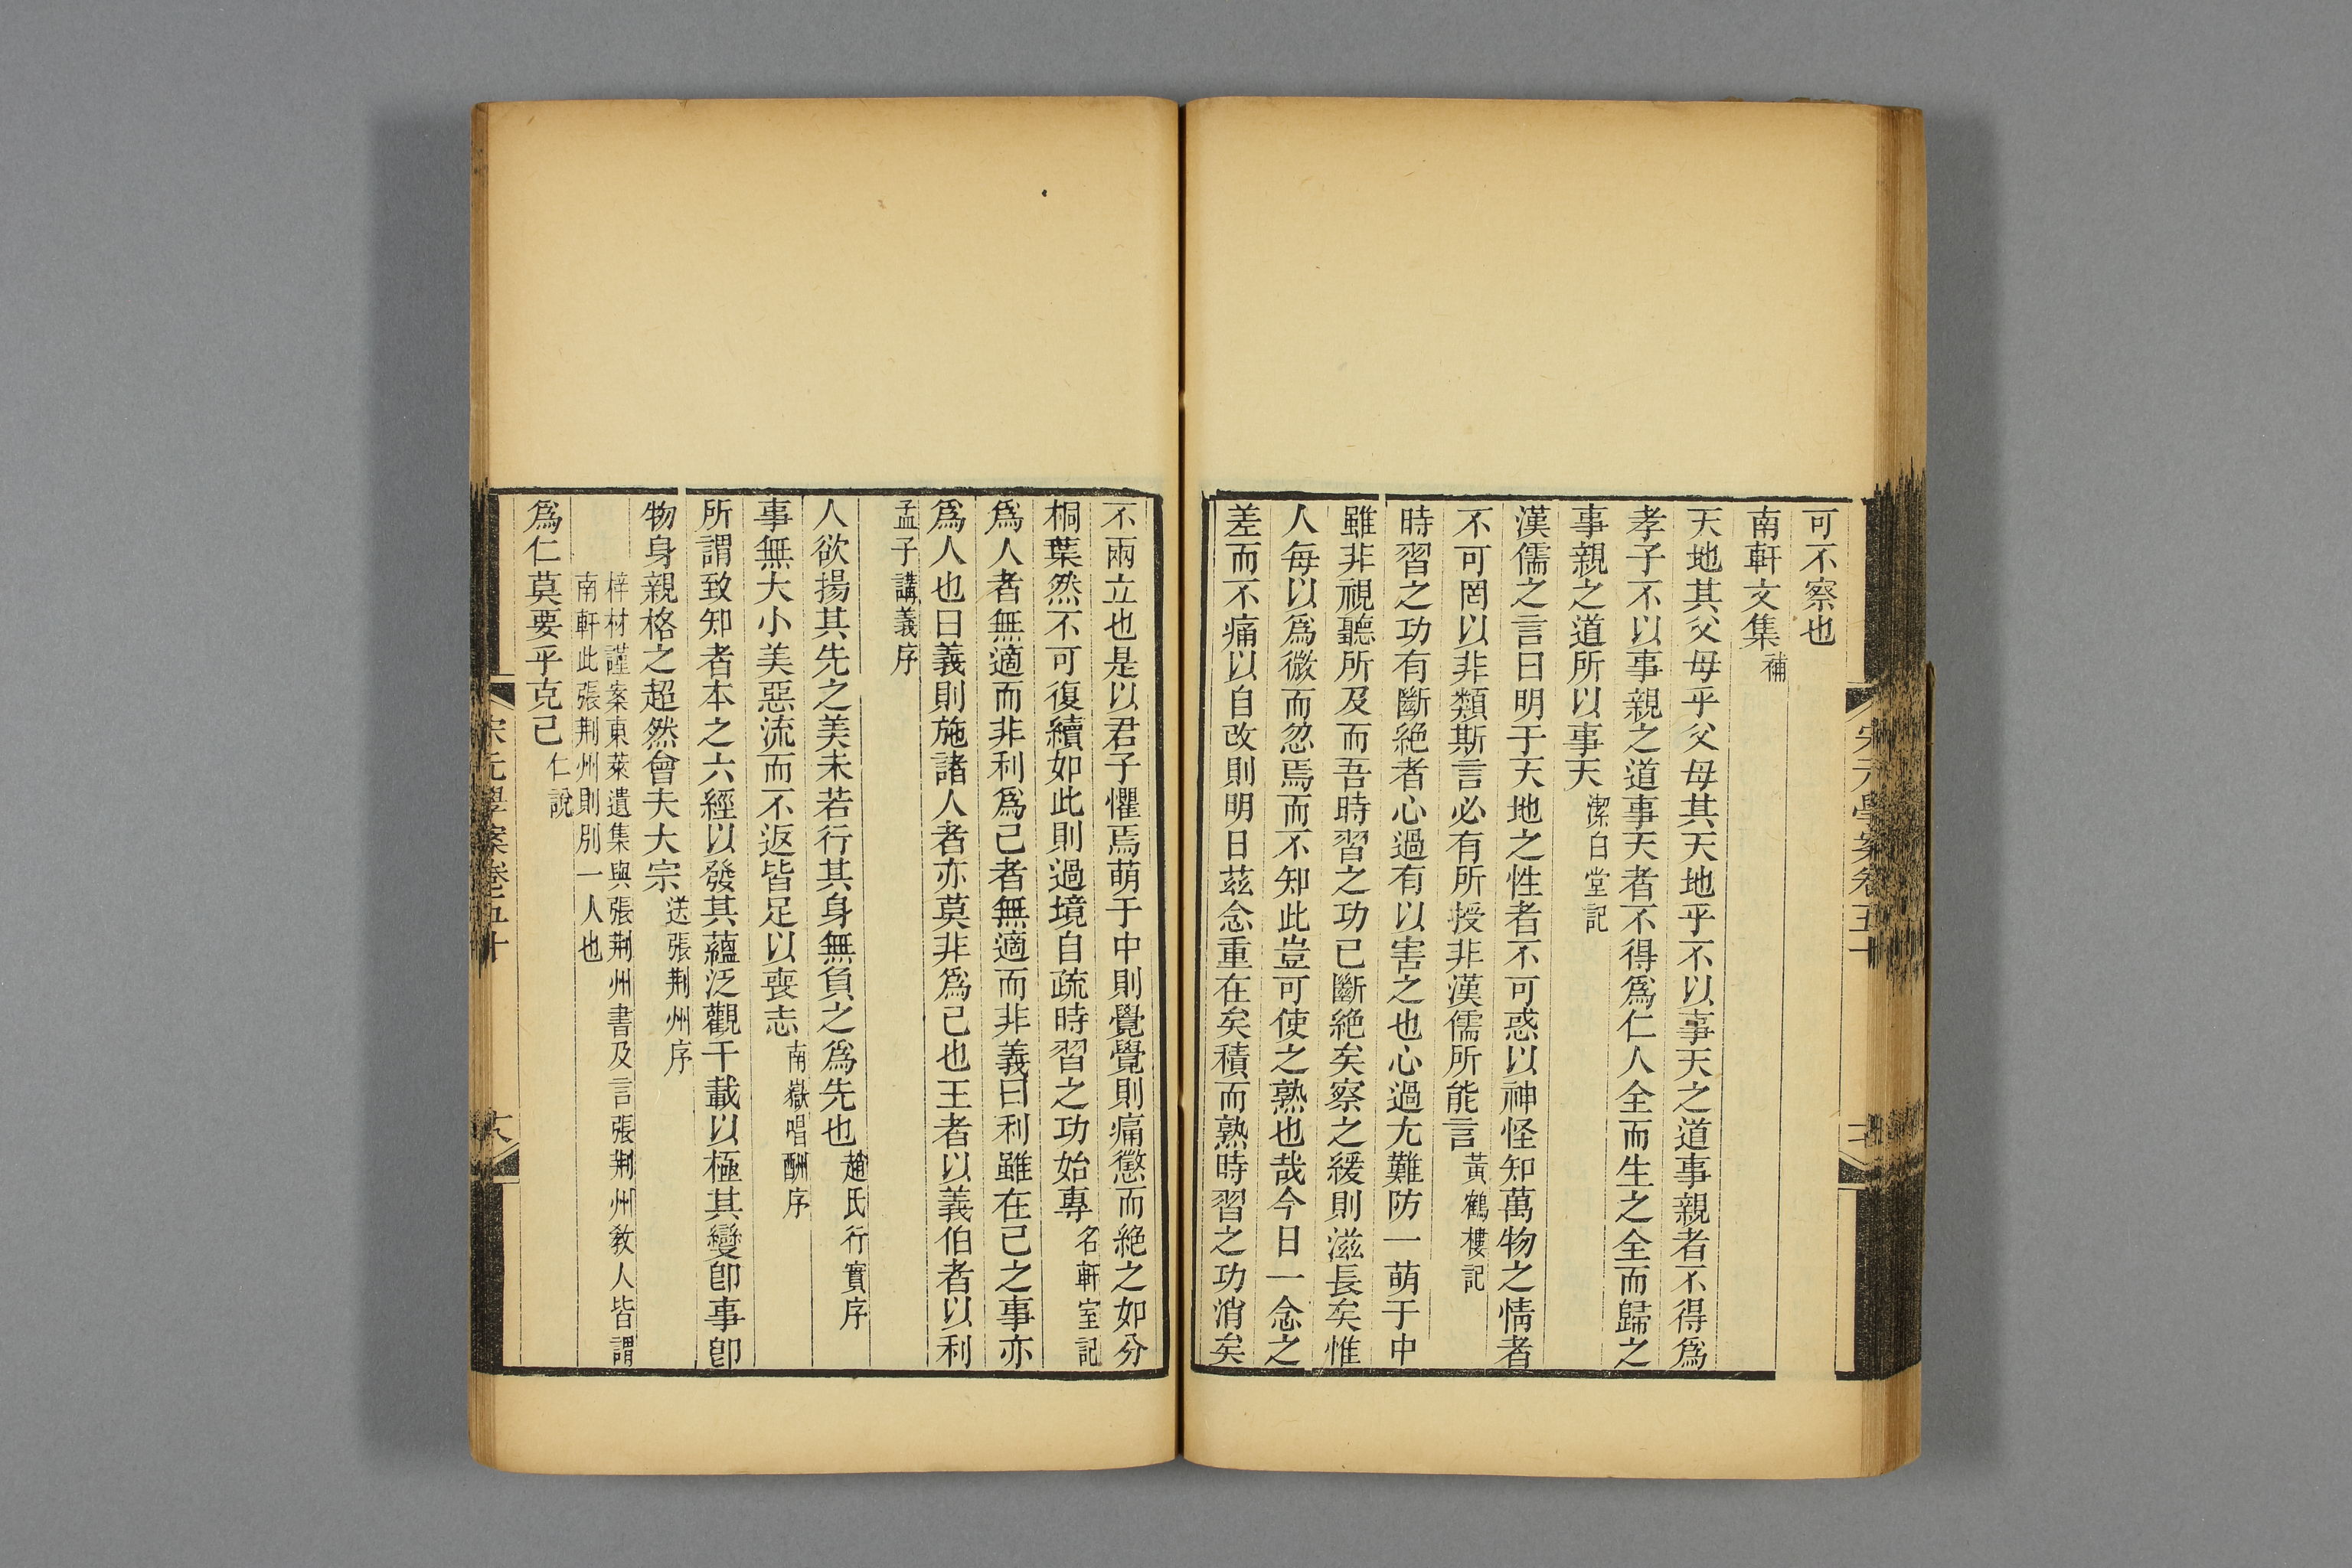 宋元學案卷五十
可不察也
南軒文集補
天地其父母乎父母其天地乎不以事天之道事親者不得爲
孝子不以事親之道事天者不得爲仁人全而生之全而歸之
事親之道所以事天潔白堂記
漢儒之言曰明于天地之性者不可惑以神怪知萬物之情者
不可罔以非類斯言必有所授非漢儒所能言黃鶴樓記
時習之功有斷絕者心過有以害之也心過尤難防一萌于中
雖非視聽所及而吾時習之功已斷絕矣察之緩則滋長矣惟
人每以爲微而忽焉而不知此豈可使之熟也哉今日一念之
差而不痛以自改則明日茲念重在矣積而熟時習之功消矣
不兩立也是以君子懼焉萌于中則覺覺則痛懲而絕之如分
桐葉然不可復續如此則過境自疏時習之功始專名軒室記
爲人者無適而非利爲己者無適而非義曰利雖在己之事亦
爲人也曰義則施諸人者亦莫非爲己也王者以義伯者以利
孟子講義序
人欲揚其先之美未若行其身無負之爲先也趙氏行實序
事無大小美惡流而不返皆足以喪志南嶽唱酬序
所謂致知者本之六經以發其蘊泛觀千載以極其變卽事卽
物身親格之超然會夫大宗送張荆州序
梓材謹案東萊遺集與張荆州書及言張荆州敎人皆謂
南軒此張荆州則別一人也
爲仁莫要乎克己仁說
宋元學案卷五十
六